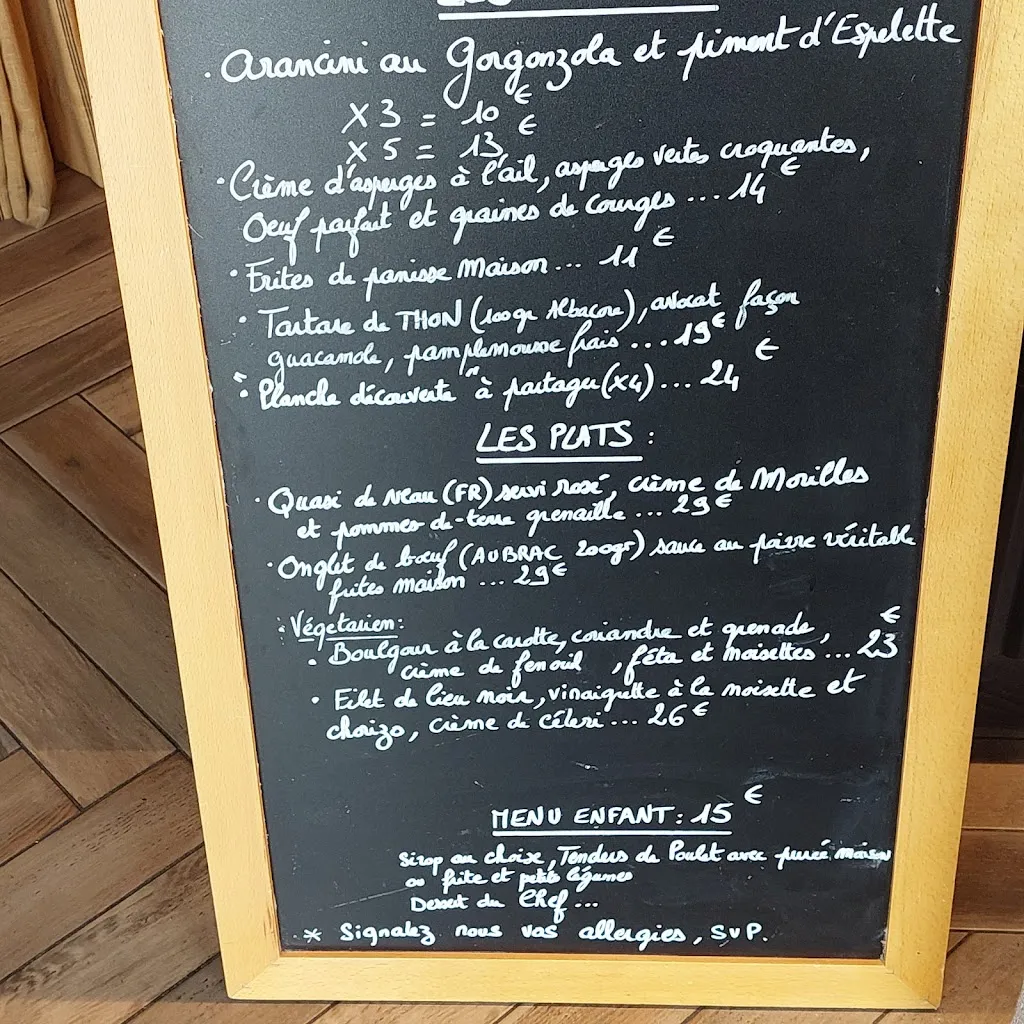 . Arancini au Gorgonzola et piment d'Espelette
X 3 = 10 €
X 5 = 13 €
. Crème d'asperges à l'ail, asperges vertes croquantes,
Oeuf parfait et graines de courges ... 14 €
. Frites de panisse Maison ... 11 €
. Tartare de THON (100gr Albacore), avocat façon
guacamole, pamplemousse frais ... 19€
. "Planche découverte" à partager (x4) ... 24 €
LES PLATS :
. Quasi de veau (FR) servi rosé, crème de Morilles
et pommes de-terre grenaille ... 29€
. Onglet de bœuf (AUBRAC 200gr) sauce au poivre véritable
frites maison ... 29€
. Végetarien :
. Boulgour à la carotte, coriandre et grenade,
crème de fenouil , féta et noisettes ... 23 €
. Filet de lieu noir, vinaigrette à la noisette et
chorizo, crème de céleri ... 26 €
MENU ENFANT : 15 €
Sirop au choix, Tenders de Poulet avec purée maison
ou frite et petits légumes
Dessert du Chef ...
* Signalez nous vos allergies, SVP.